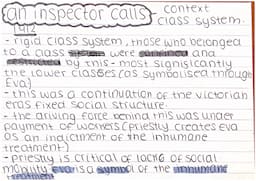 an inspector calls - context
class system.
1912
- rigid class system, those who belonged
to a class were confined and
by this - most significantly
the lower classes (as symbolised through
Eva)
- this was a continuation of the victorian
eras fixed social structure.
- the driving force behind this was under
payment of workers (priestly creates Eva
as an indictment of the inhumane
treatment)
- priestly is critical of lack of social
mobility eva is a symbol of the inhumane
treatment